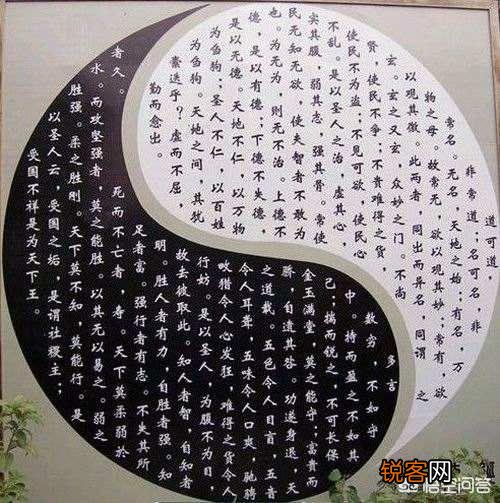 道可道
非常道;名可名,非
常名。无名,天地之始;有名,万
物之母。故常无,欲以观其妙;常有,欲
以观其徼。此两者,同出而异名,同谓之
玄。玄之又玄,众妙之门。不尚
贤,使民不争;不贵难得之货,
使民不为盗;不见可欲,使民心
不乱。是以圣人之治,虚其心,
实其腹,弱其志,强其骨。常使
民无知无欲,使夫智者不敢为
也。为无为,则无不治。上德不
德,是以有德;下德不失德,
是以无德。天地不仁,以万物
为刍狗;圣人不仁,以百姓
为刍狗。天地之间,其犹
橐乎?虚而不屈,
勤而愈出。
多言
数穷,不如守
中。持而盈之不如其
己;揣而锐之,不可长保
金玉满堂,莫之能守;富贵而
骄,自遗其咎。功遂身退,天
之道哉。五色令人目盲,五音
令人耳聋,五味令人口爽,驰骋
畋猎令人心发狂,难得之货令人
行妨。是以圣人,为腹不为目
故去彼取此。知人者智,自知者
明。胜人者有力,自胜者强。知
足者富。强行者有志。不失其所
者久。死而不亡者,寿。天下莫柔弱於
水。而攻坚强者,莫之能胜。以其无以易之。弱之
胜强。柔之胜刚。天下莫不知,莫能行。是
以圣人云,受国之垢,是谓社稷主;
受国不祥是为天下王。
锐客网
悟空问答